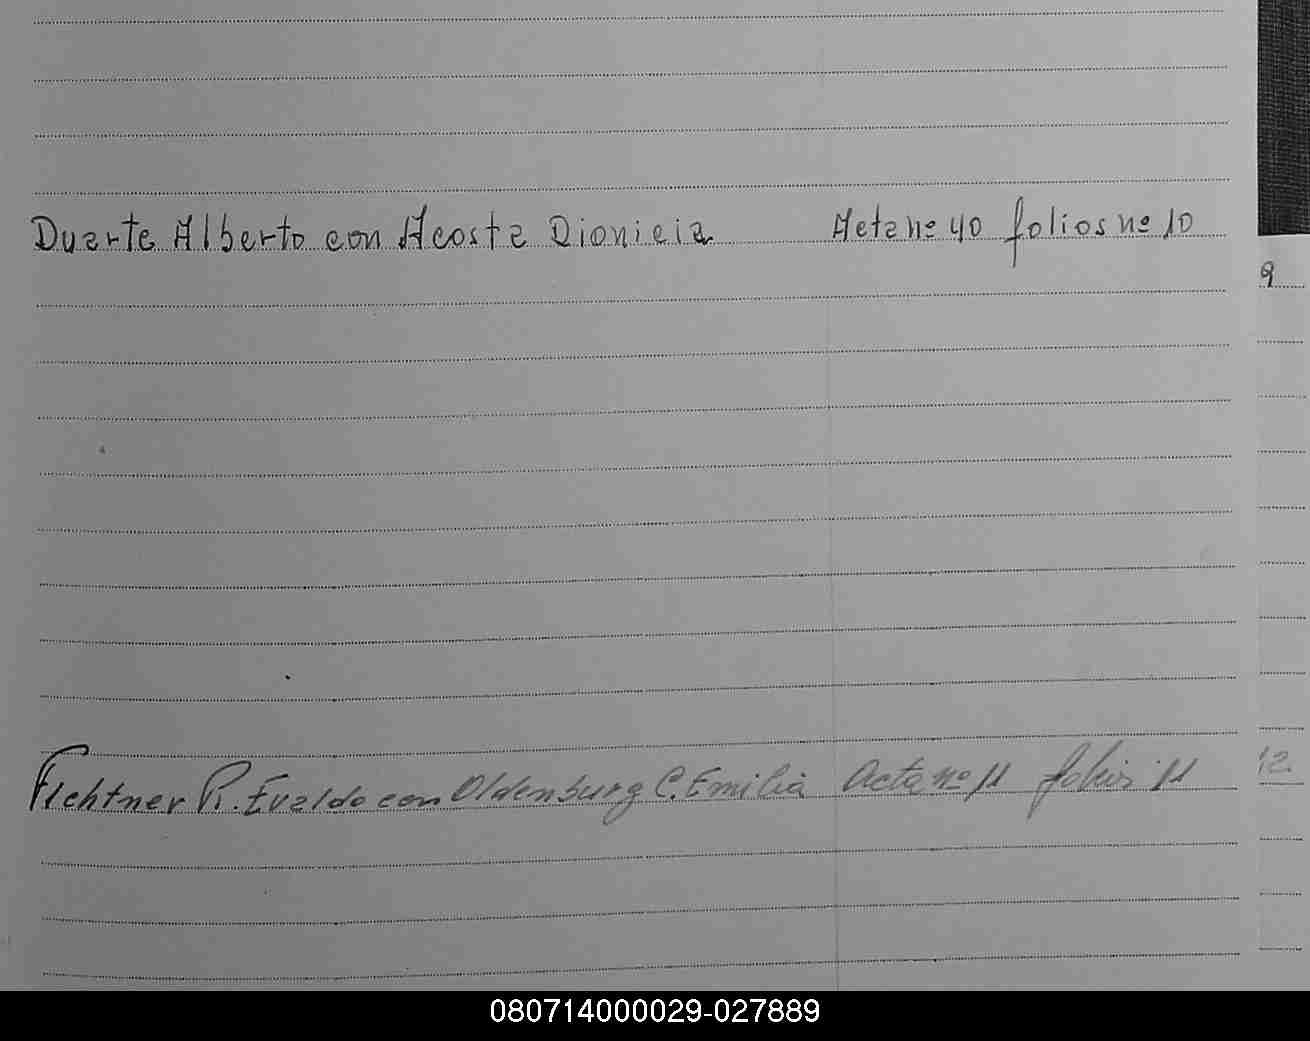 Duarte Alberto con Acosta Dionicia Acta nº 40 folios nº 10
9
Fichtner R. Evaldo con Oldenburg C. Emilia Acta nº 11 folios 11
12
080714000029-027889